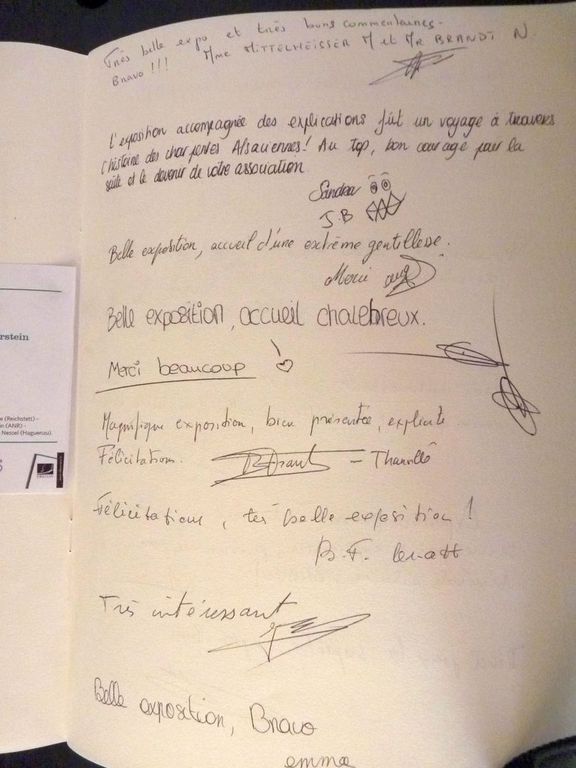 Très belle expo et très bons commentaires.
Bravo !!! Mme MITTELHEISSER M et Mr BRANDT N.
L'exposition accompagnée des explications fût un voyage à travers
l'histoire des charpentes Alsaciennes! Au top, bon courage pour la
suite et le devenir de votre association.
Sandra
J.B
Belle exposition, accueil d'une extrême gentillesse.
Merci
Belle exposition, accueil chaleureux.
Merci beaucoup
Magnifique exposition, bien présentée, explicite
Félicitations. - Thanvillé
Félicitations, très belle exposition !
B.F.
Très intéressant
Belle exposition, Bravo
emma
rstein
e (Reichstett) -
n (ANR) -
Nessel (Haguenau).